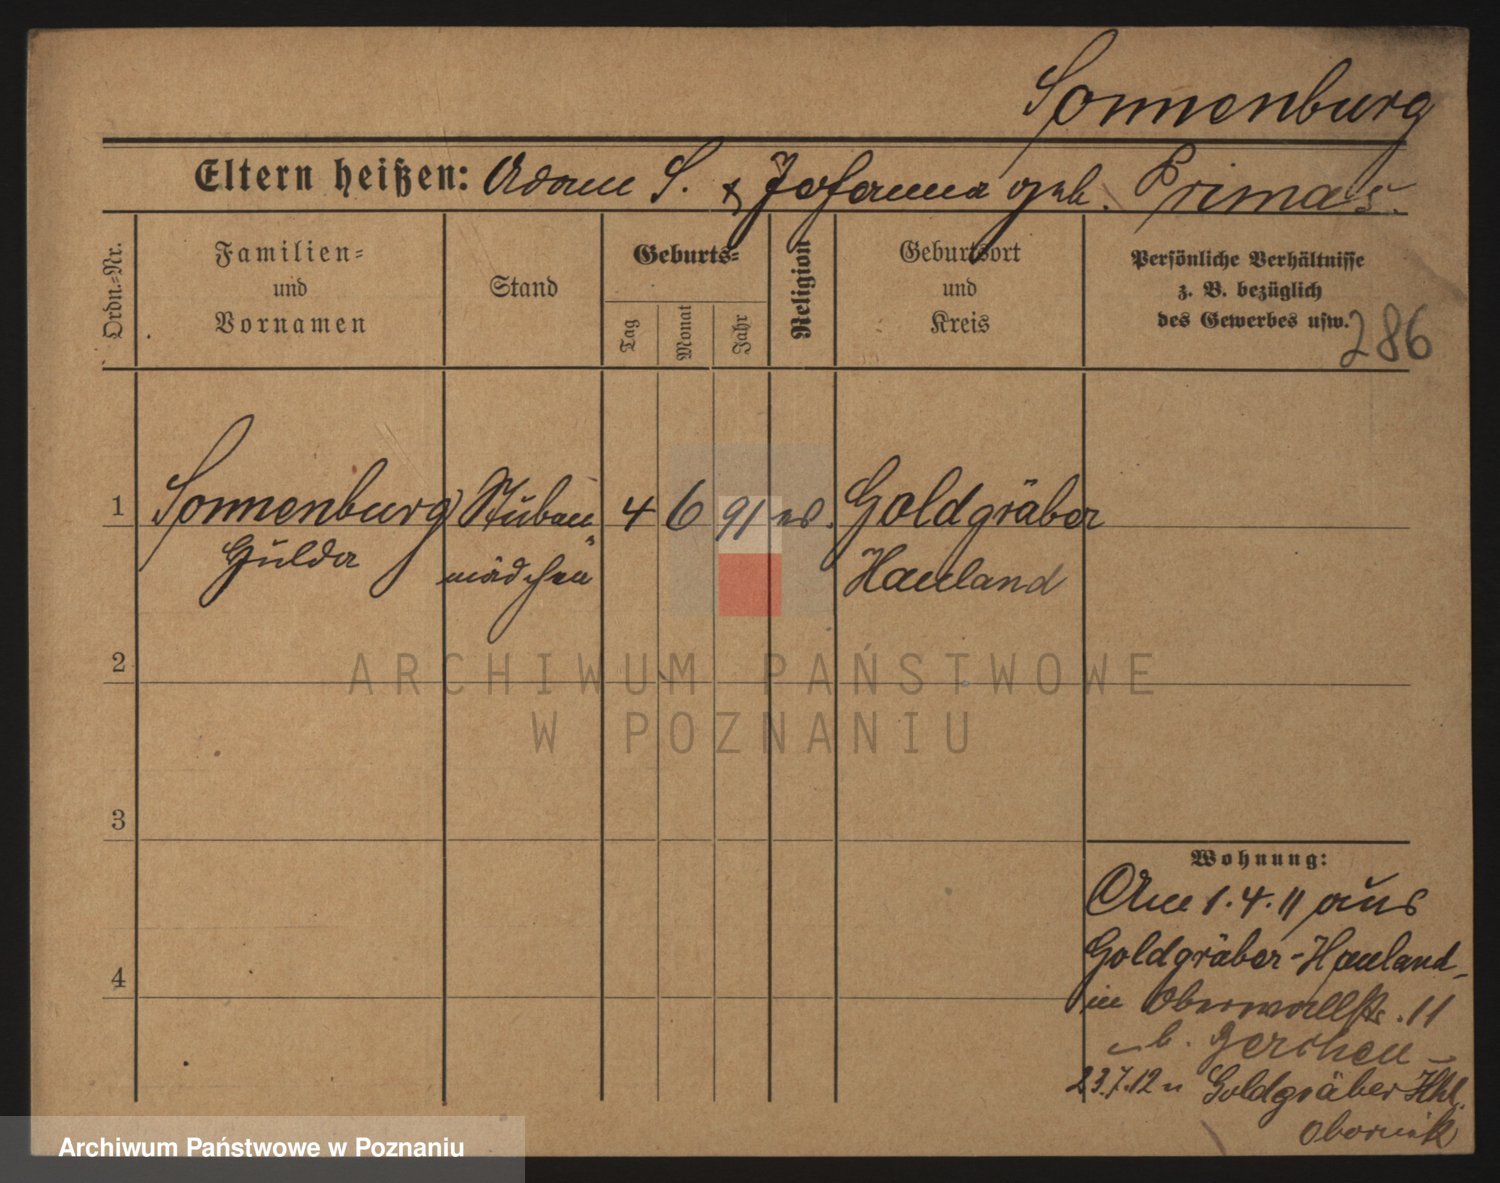 Sonnenburg
Eltern heißen: Adam S. & Johanna geb. Primas.
Ordn.-Nr.
Familien-
und
Vornamen
Stand
Geburts-
Tag
Monat
Jahr
Religion
Geburtsort
und
Kreis
Persönliche Verhältnisse
z. B. bezüglich
des Gewerbes usw.
286
1 Sonnenburg Stuben 4 6 91 ev. Goldgräber
Hulda mädchen Hauland
2
3
4
Wohnung:
Am 1.4.11 aus
Goldgräber-Hauland
in Oberwallstr. 11
b. Gerchen
23.7.12 n Goldgräber Hld.
Obornik
ARCHIWUM PAŃSTWOWE
W POZNANIU
Archiwum Państwowe w Poznaniu